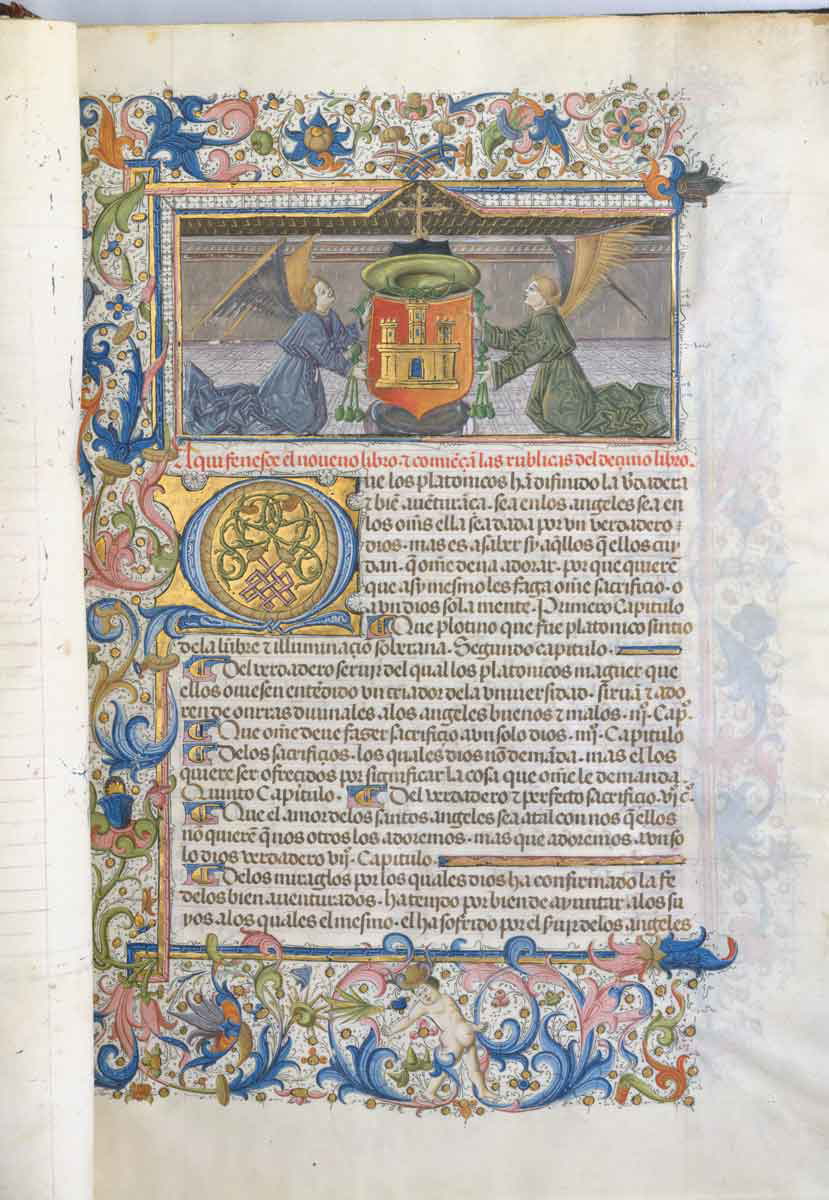 Aqui feneſçe el noueno libro ⁊ comiẽçã las rublicas del deçimo libro.
Que los platonicos hã difinido la v̾dadera
⁊ biẽ auẽturãça. sea en los angeles sea en
los om̃s ella sea dada por vn verdadero
dios. mas es a saber sy aq̃llos q̃ ellos cuy
dan. q̃ om̃e deua adorar. por que quierẽ
que asy mesmo les faga om̃e sacrifiçio. o
a vn dios sola mente. Primero Capitulo
Que plotino que fue platonico sintio
de la lũbre ⁊ illuminaçio soberana. Segundo capitulo.
Del verdadero seruir del qual los platonicos maguer que
ellos ouiesen entẽdido vn criador de la vniuersidad. siruã ⁊ ado
ren de onrras diuinales a los angeles buenos ⁊ malos. iijº. Capº.
Que om̃e deue faser sacrifiçio a vn solo dios. iiijº. Capitulo
De los sacrifiçios. los quales dios nõ demãda. mas el los
quiere ser ofreçidos por significar la cosa que om̃e le demanda.
Quinto Capitulo. Del verdadero ⁊ perfecto sacrifiçio. vjº cº.
Que el amor de los santos angeles sea atal con nos q̃ ellos
nõ quierẽ q̃ nos otros los adoremos. mas que adoremos a vn so
lo dios verdadero vijº. Capitulo.
De los miraglos por los quales dios ha confirmado la fe
de los bien auenturados. ha tenido por bien de ayuntar a los su
yos a los quales el mesmo. el ha sofrido por el s̃uir de los angeles